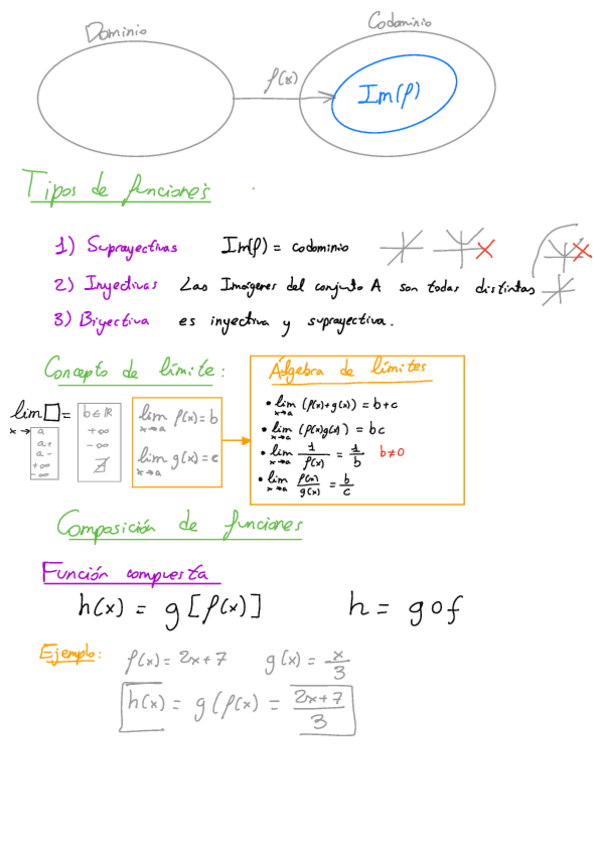 Dominio
Codominio
f(x)
Im(f)
Tipos de funciones
1) Suprayectivas Im(f) = codominio
2) Inyectivas Las Imágenes del conjunto A son todas distintas
3) Biyectiva es inyectiva y suprayectiva.
Concepto de límite:
lim □ =
x→
a
a+
a-
+∞
-∞
b∈ℝ
+∞
-∞
∄
lim f(x) = b
x→a
lim g(x) = c
x→a
Álgebra de límites
• lim (f(x)+g(x)) = b+c
x→a
• lim (f(x)g(x)) = bc
x→a
• lim 1/f(x) = 1/b b≠0
x→a
• lim f(x)/g(x) = b/c
x→a
Composición de funciones
Función compuesta
h(x) = g[f(x)] h = g o f
Ejemplo: f(x) = 2x+7 g(x) = x/3
h(x) = g(f(x) = 2x+7/3